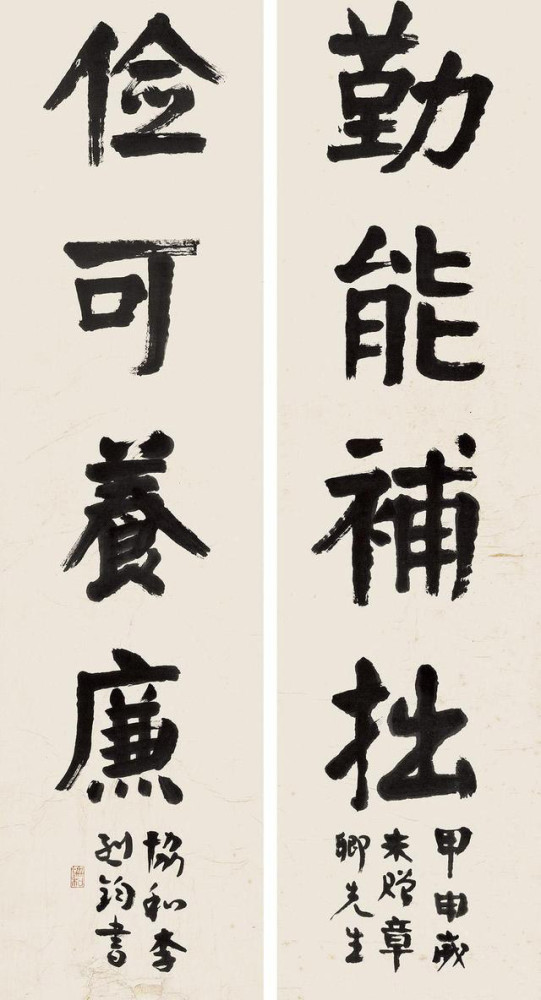 勤能補拙
甲申歲
末贈章
卿先生
儉可養廉
協和李
烈鈞書